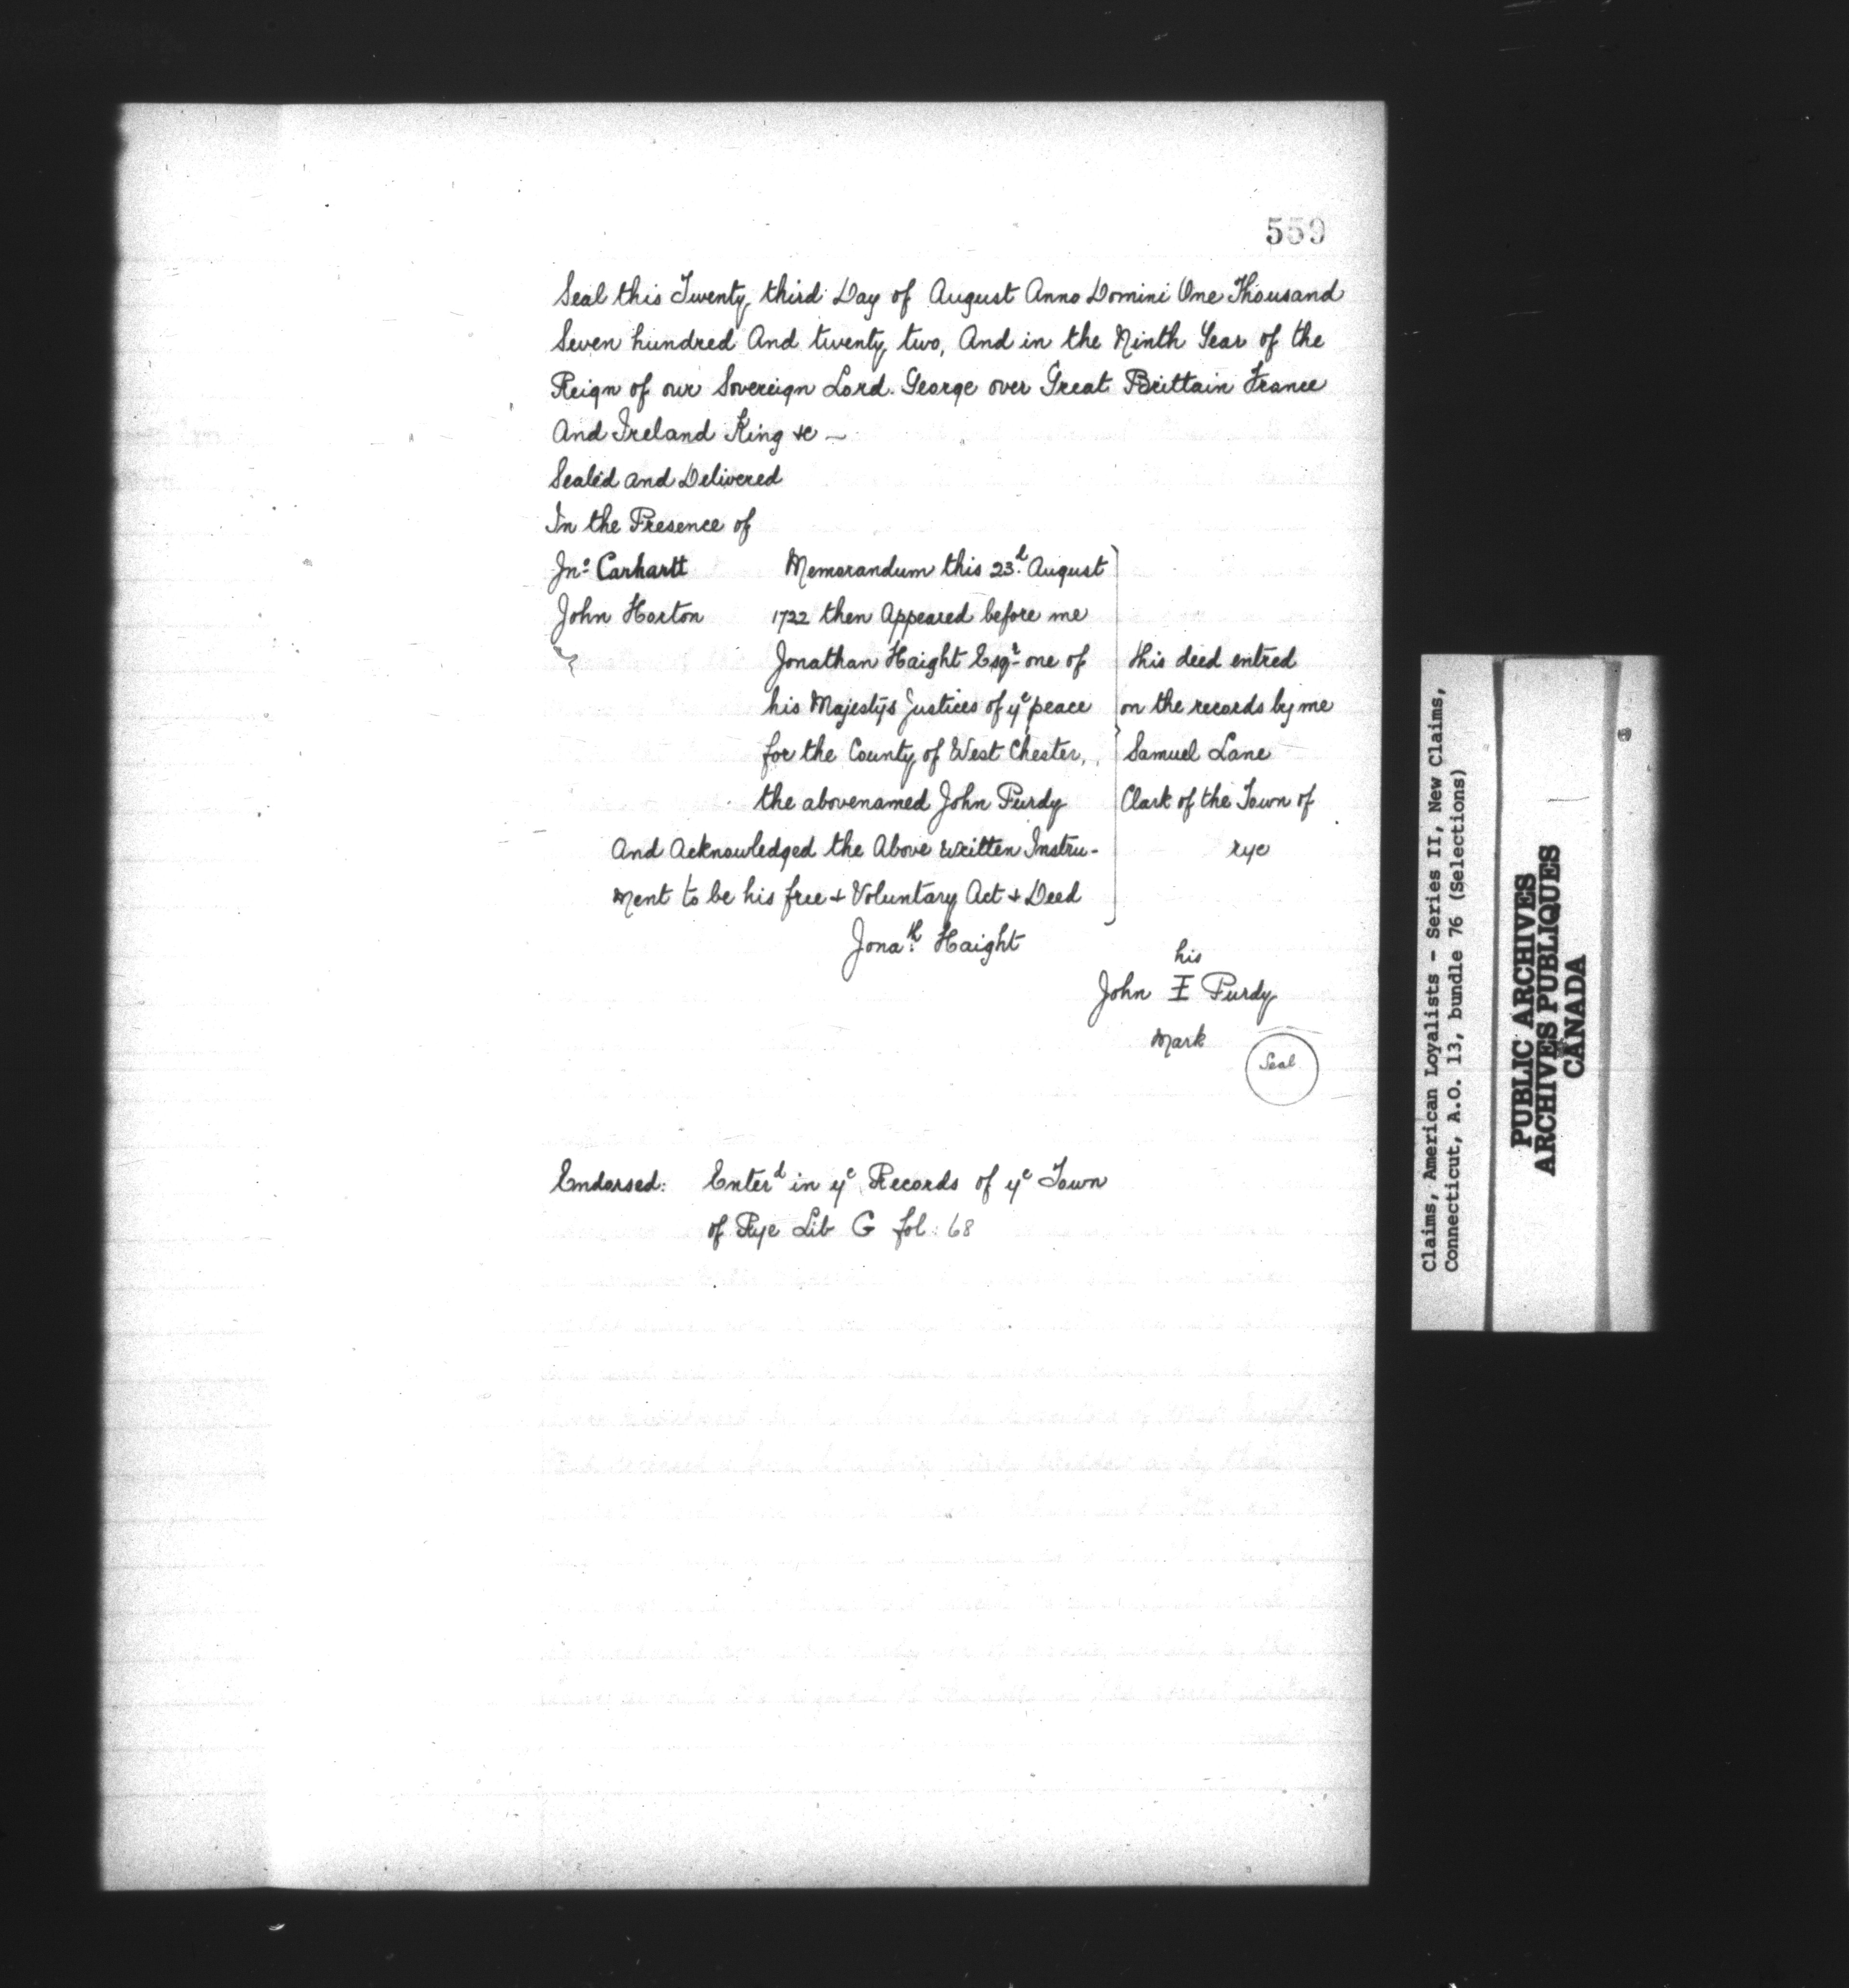 559
Seal this Twenty third Day of August Anno Domini One Thousand
Seven hundred And twenty two, And in the Ninth Year of the
Reign of our Sovereign Lord George over Great Brittain France
And Ireland King &c —
Sealed and Delivered
In the Presence of
Jnº Carhartt
John Horton
Memorandum this 23.d August
1722 then Appeared before me
Jonathan Haight Esqr one of
his Majestys Justices of ye peace
for the County of West Chester,
the abovenamed John Purdy
And Acknowledged the Above written Instru-
ment to be his free & Voluntary Act & Deed
Jonath Haight
this deed entred
on the records by me
Samuel Lane
Clark of the Town of
rye
his
John I Purdy
Mark
Seal
Endorsed: Enterd in ye Records of ye Town
of Rye Lib G fol: 68
Claims, American Loyalists - Series II, New Claims,
Connecticut, A.O. 13, bundle 76 (Selections)
PUBLIC ARCHIVES
ARCHIVES PUBLIQUES
CANADA